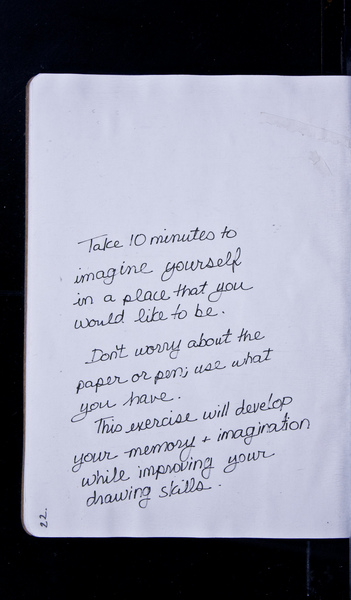 Take 10 minutes to
imagine yourself
in a place that you
would like to be.
Don't worry about the
paper or pen; use what
you have.
This exercise will develop
your memory + imagination
while improving your
drawing skills.
22.